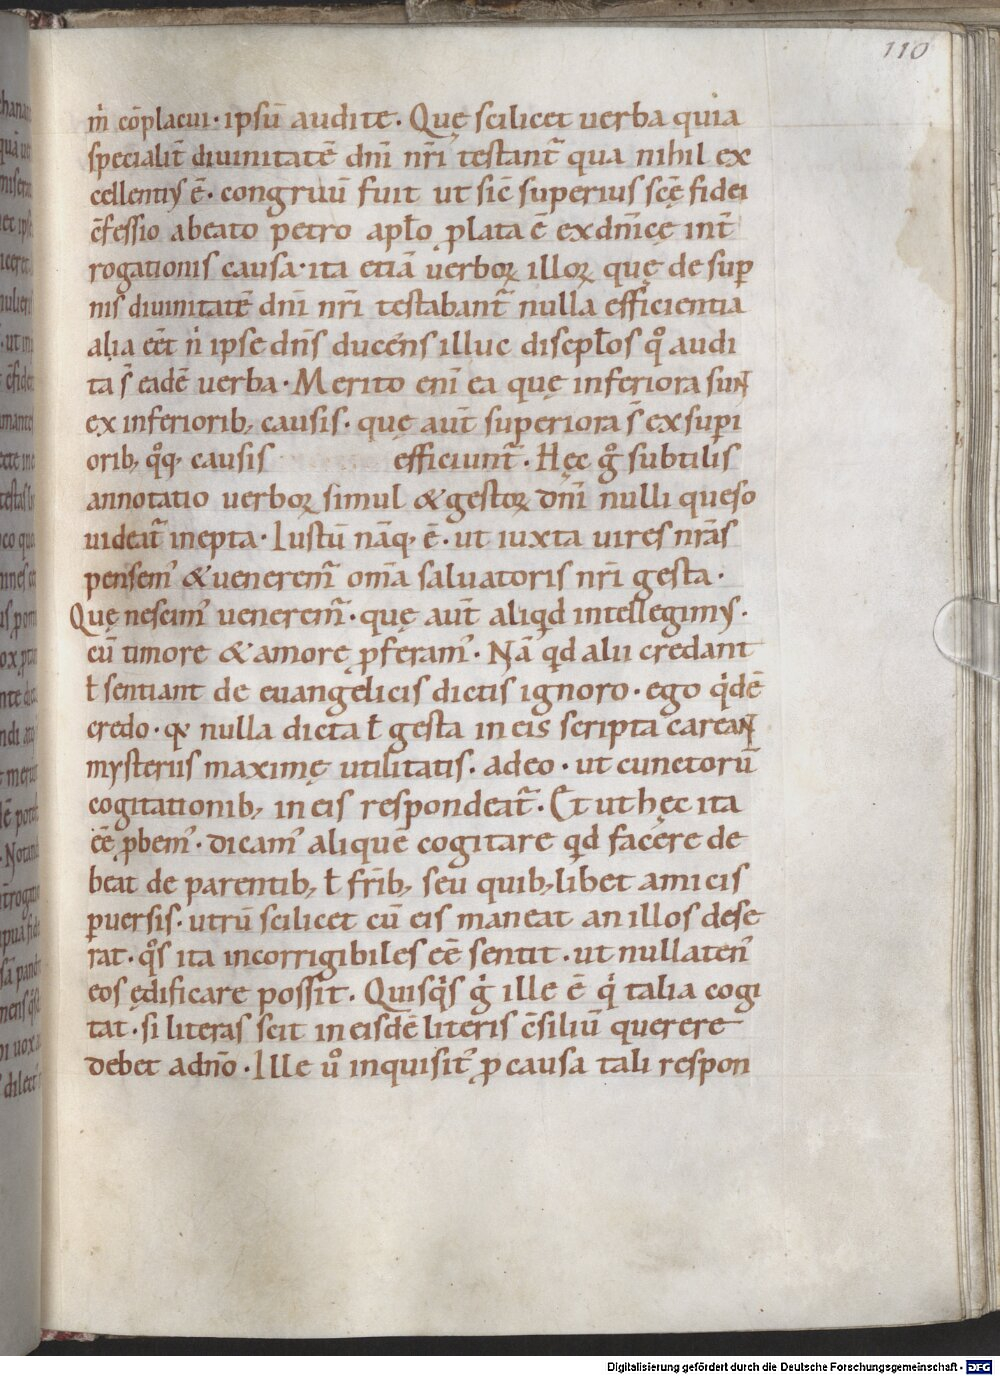 110
m̍ cōplacui · ipsū audite · Quę scilicet uerba quia
specialit̄ diuinitatē dn̄i nr̄i testant᷑ qua nihil ex
cellentiꝰ ē · congruū fuit ut sic̄ superius scę̄ fidei
c̄fessio abeato petro apl̄o ꝓlata ē exdn̄icę int̄
rogationis causa · ita etiā uerboꝝ illoꝝ quę de sup̄
nis diuinitatē dn̄i nr̄i testabant᷑ nulla efficientia
alia eēt n̍ ipse dn̄s ducens illuc discipl̄os qͦ audi
ta s̄ eadē uerba · Merito eni̅ ea quę inferiora sunt
ex inferiorib; causis · quę aut̄ superiora s̄ ex sup̄i
orib; qͦq; causis efficiunt᷑ · Hęc gͦ subtilis
annotatio uerboꝝ simul & gestoꝝ dn̄i nulli queso
uideat᷑ inepta · Iustū nāq; ē · ut iuxta uires nr̄as
pensemꝰ & ueneremꝰ om̄a saluatoris nr̄i gesta ·
Quę nescimꝰ ueneremur᷑ · quę aut̄ aliqd intellegimꝰ ·
cū timore & amore p̄feramꝰ · Nā qd alii credant
ł sentiant de euangelicis dictis ignoro · ego q̍dē
credo · qꝫ nulla dicta ł gesta in eis scripta careant
mysteriis maximę utilitatis · adeo · ut cunctorū
cogitationib; in eis respondeat᷑ · Et ut hęc ita
eē ꝓbemꝰ · dicamꝰ aliquē cogitare qd facere de
beat de parentib; ł fr̄ib; seu quib;libet amicis
ꝑuersis · utrū scilicet cū eis maneat an illos dese
rat · qͦs ita incorrigibiles eē sentit · ut nullatenꝰ
eos ędificare possit · Quisq̍s g̍ ille ē q̍ talia cogi
tat · si literas scit in eisdē literis c̄siliū querere
debet adn̄o · Ille uͦ inquisitꝰ ꝓ causa tali respon
Digitalisierung gefördert durch die Deutsche Forschungsgemeinschaft · DFG